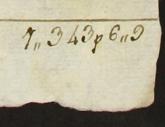 7,, 343 p 6,, 9